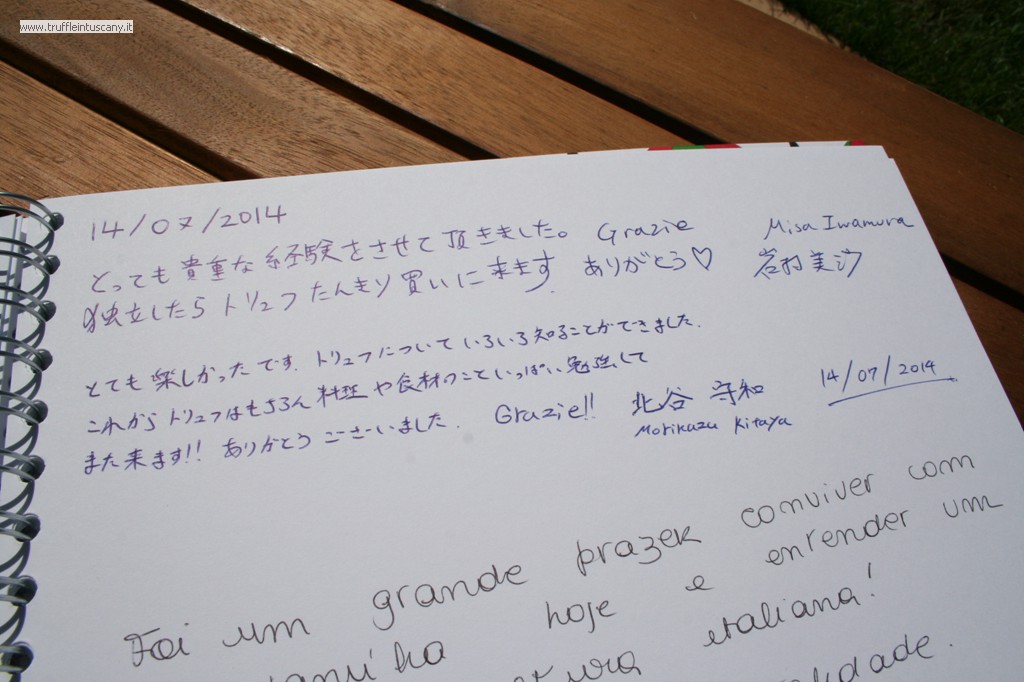 www.truffleintuscany.it
14/07/2014
とっても貴重な経験をさせて頂きました。 Grazie Misa Iwamura
独立したらトリュフたんまり買いに来ます ありがとう♡ 岩村美沙
とても楽しかったです。トリュフについていろいろ知ることができました.
これからトリュフはもちろん料理や食材のこといっぱい勉強して
また来ます!! ありがとうございました. Grazie!! 北谷 守和 14/07/2014
Morikazu Kitaya
Foi um grande prazer conviver com
hoje e entender um
italiana!